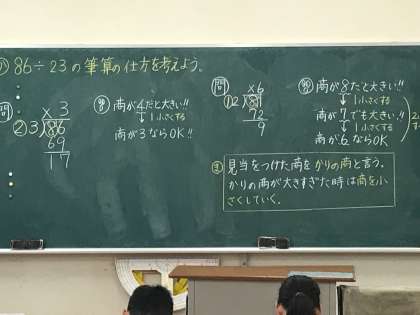 86÷23の筆算の仕方を考えよう。
問
×3
23)86
69
17
商が4だと大きい!!
↓1小さくする
商が3ならOK!!
問
×6
12)81
72
9
商が8だと大きい!!
↓1小さくする
商が7でも大きい!!
↓1小さくする
商が6ならOK
見当をつけた商をかりの商と言う。
かりの商が大きすぎた時は商を小
さくしていく。